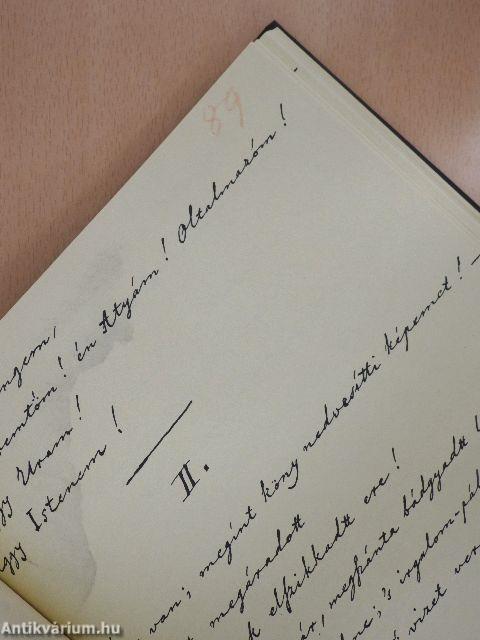 89
ngem,
remtöm! én Atyám! Oltalmazóm!
gy Uram!
Istenem!
II.
van; megint köny nedvesítti képemet! —
megáradott
k elszikkadtt ere!
ár, megszánta bádgyadtt
me;'s irgalom-pál
vizet ver
Antikvárium.hu